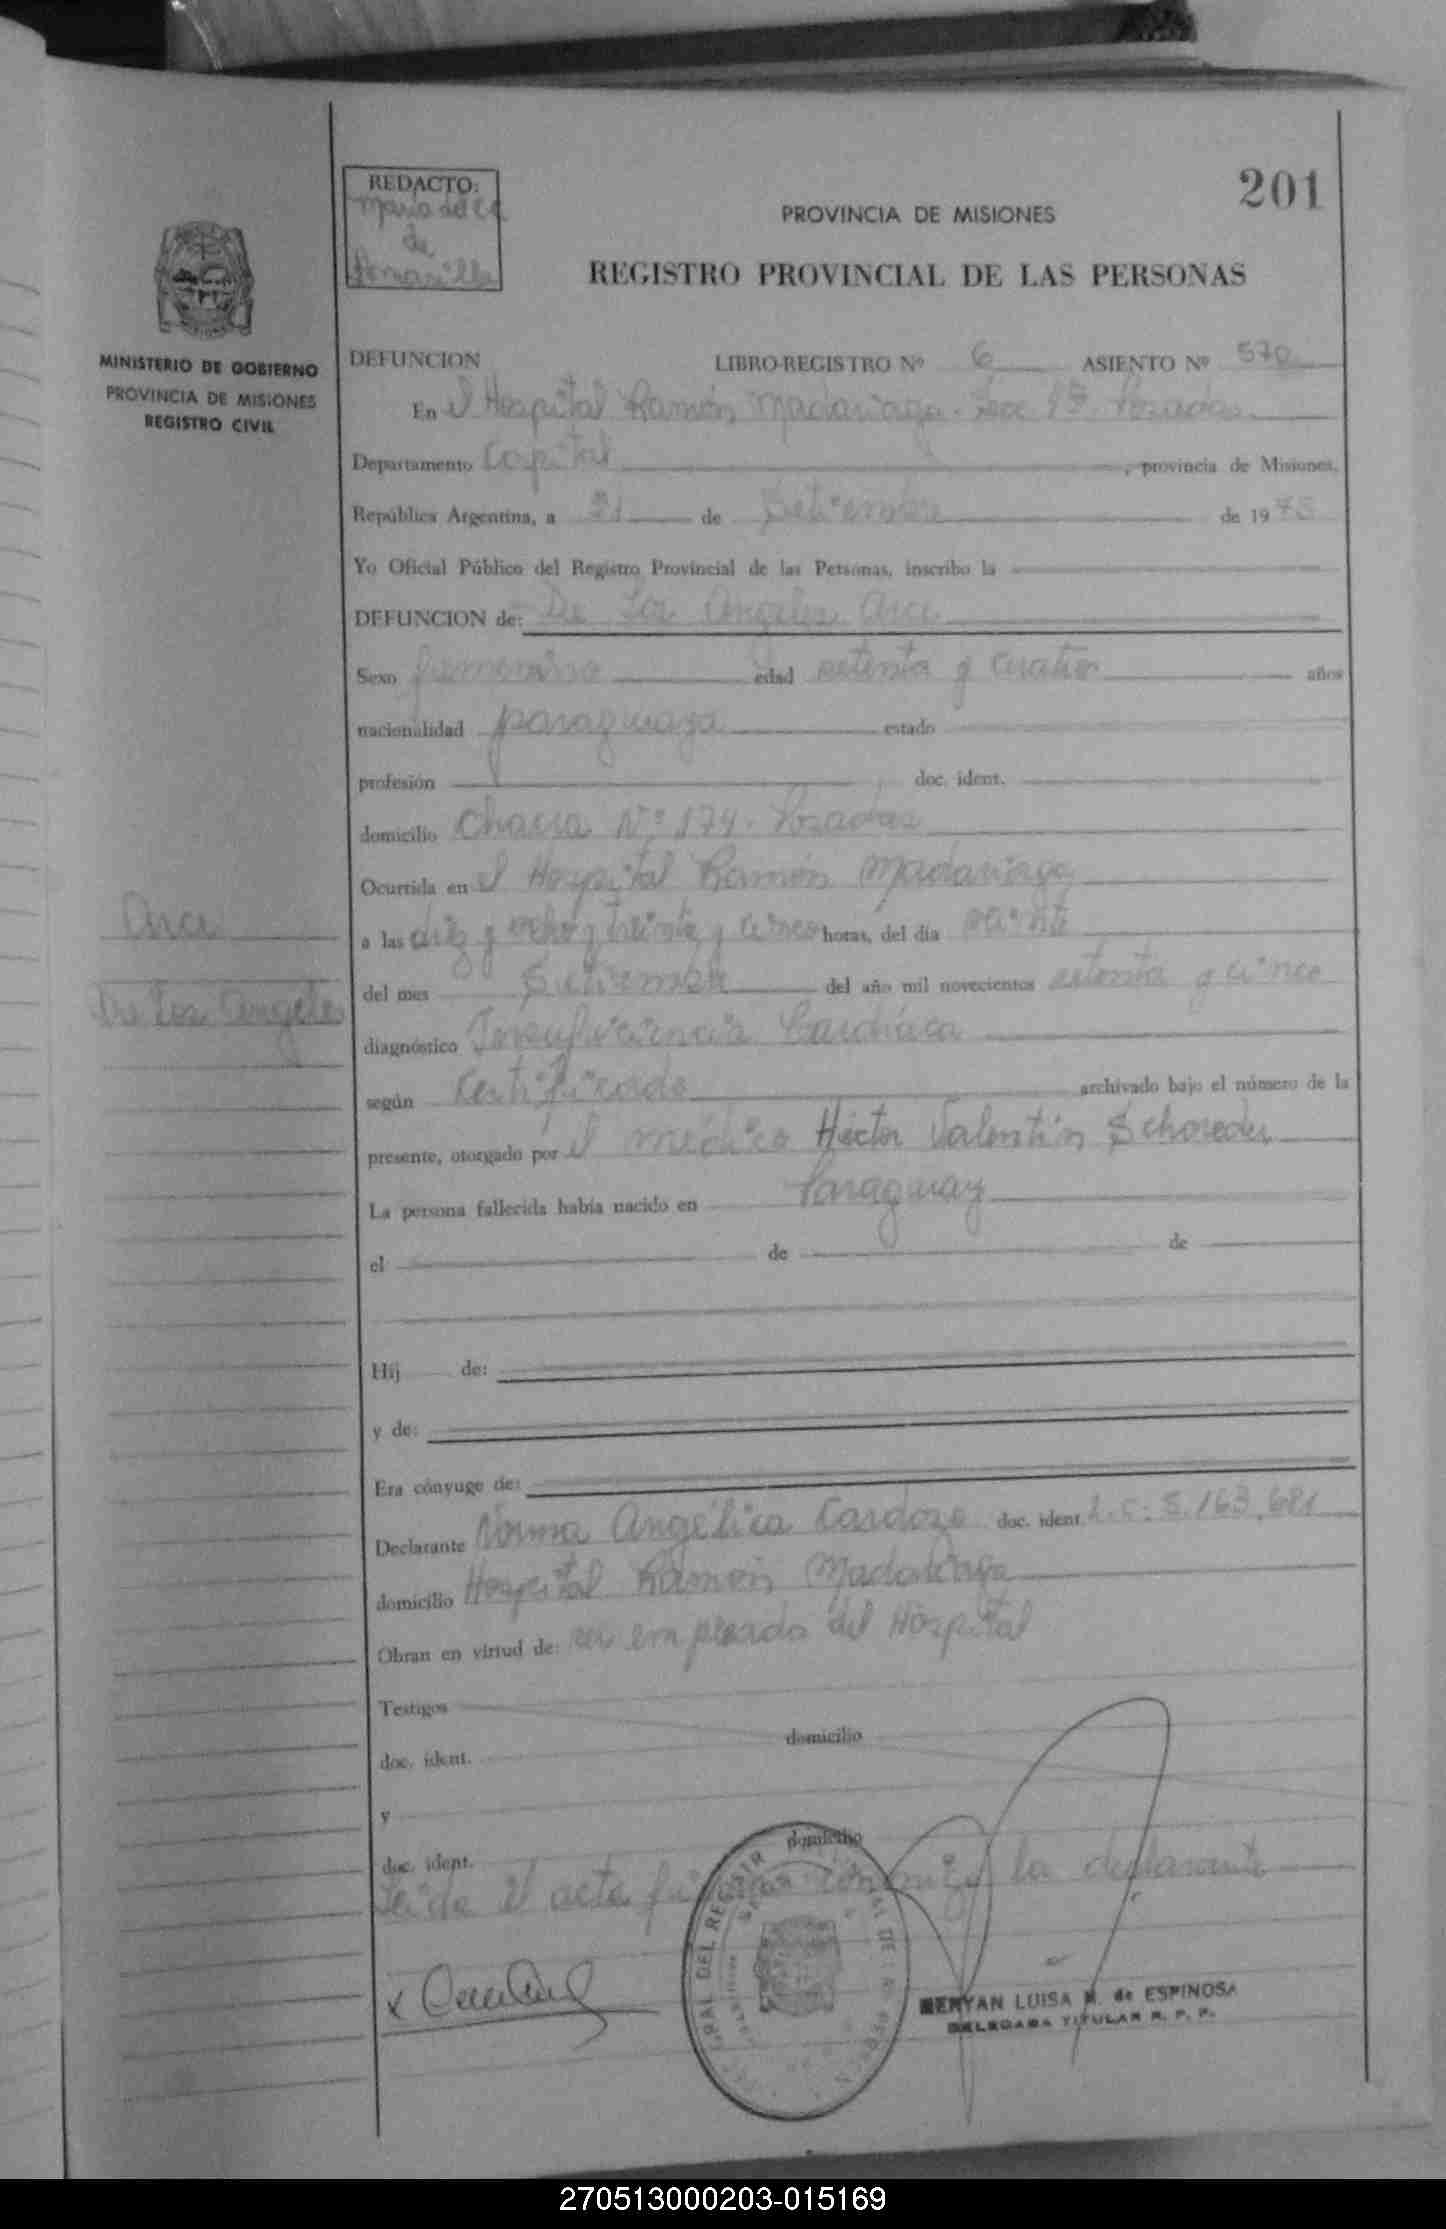 201
REDACTO:
Maria del C.
de
PROVINCIA DE MISIONES
REGISTRO PROVINCIAL DE LAS PERSONAS
MINISTERIO DE GOBIERNO
PROVINCIA DE MISIONES
REGISTRO CIVIL
DEFUNCION LIBRO-REGISTRO Nº 6 ASIENTO Nº 570
En el Hospital Ramón Madariaga. Secc 1ª. Posadas
Departamento Capital, provincia de Misiones,
República Argentina, a 21 de Setiembre de 1975
Yo Oficial Público del Registro Provincial de las Personas, inscribo la
DEFUNCION de: De Los Angeles Arce
Sexo femenino edad setenta y cuatro años
nacionalidad paraguaya estado
profesión doc. ident.
domicilio Chacra Nº 174. Posadas
Ocurrida en el Hospital Ramón Madariaga
Arce
a las diez y ocho y treinta y cinco horas, del día veinte
De Los Angeles
del mes Setiembre del año mil novecientos setenta y cinco
diagnóstico Insuficiencia Cardíaca
según certificado archivado bajo el número de la
presente, otorgado por el médico Héctor Valentín Schoreder
La persona fallecida había nacido en Paraguay
el de de
Hij de:
y de:
Era cónyuge de:
Declarante Norma Angélica Cardozo doc. ident. L.C: 5.163.681
domicilio Hospital Ramón Madariaga
Obran en virtud de: ser empleada del Hospital
Testigos
domicilio
doc. ident.
y
domicilio
doc. ident.
Leída el acta firma conmigo la declarante
GRAL DEL REGISTR
LUISA M. de ESPINOSA
DELEGADA TITULAR R. P. P.
270513000203-015169